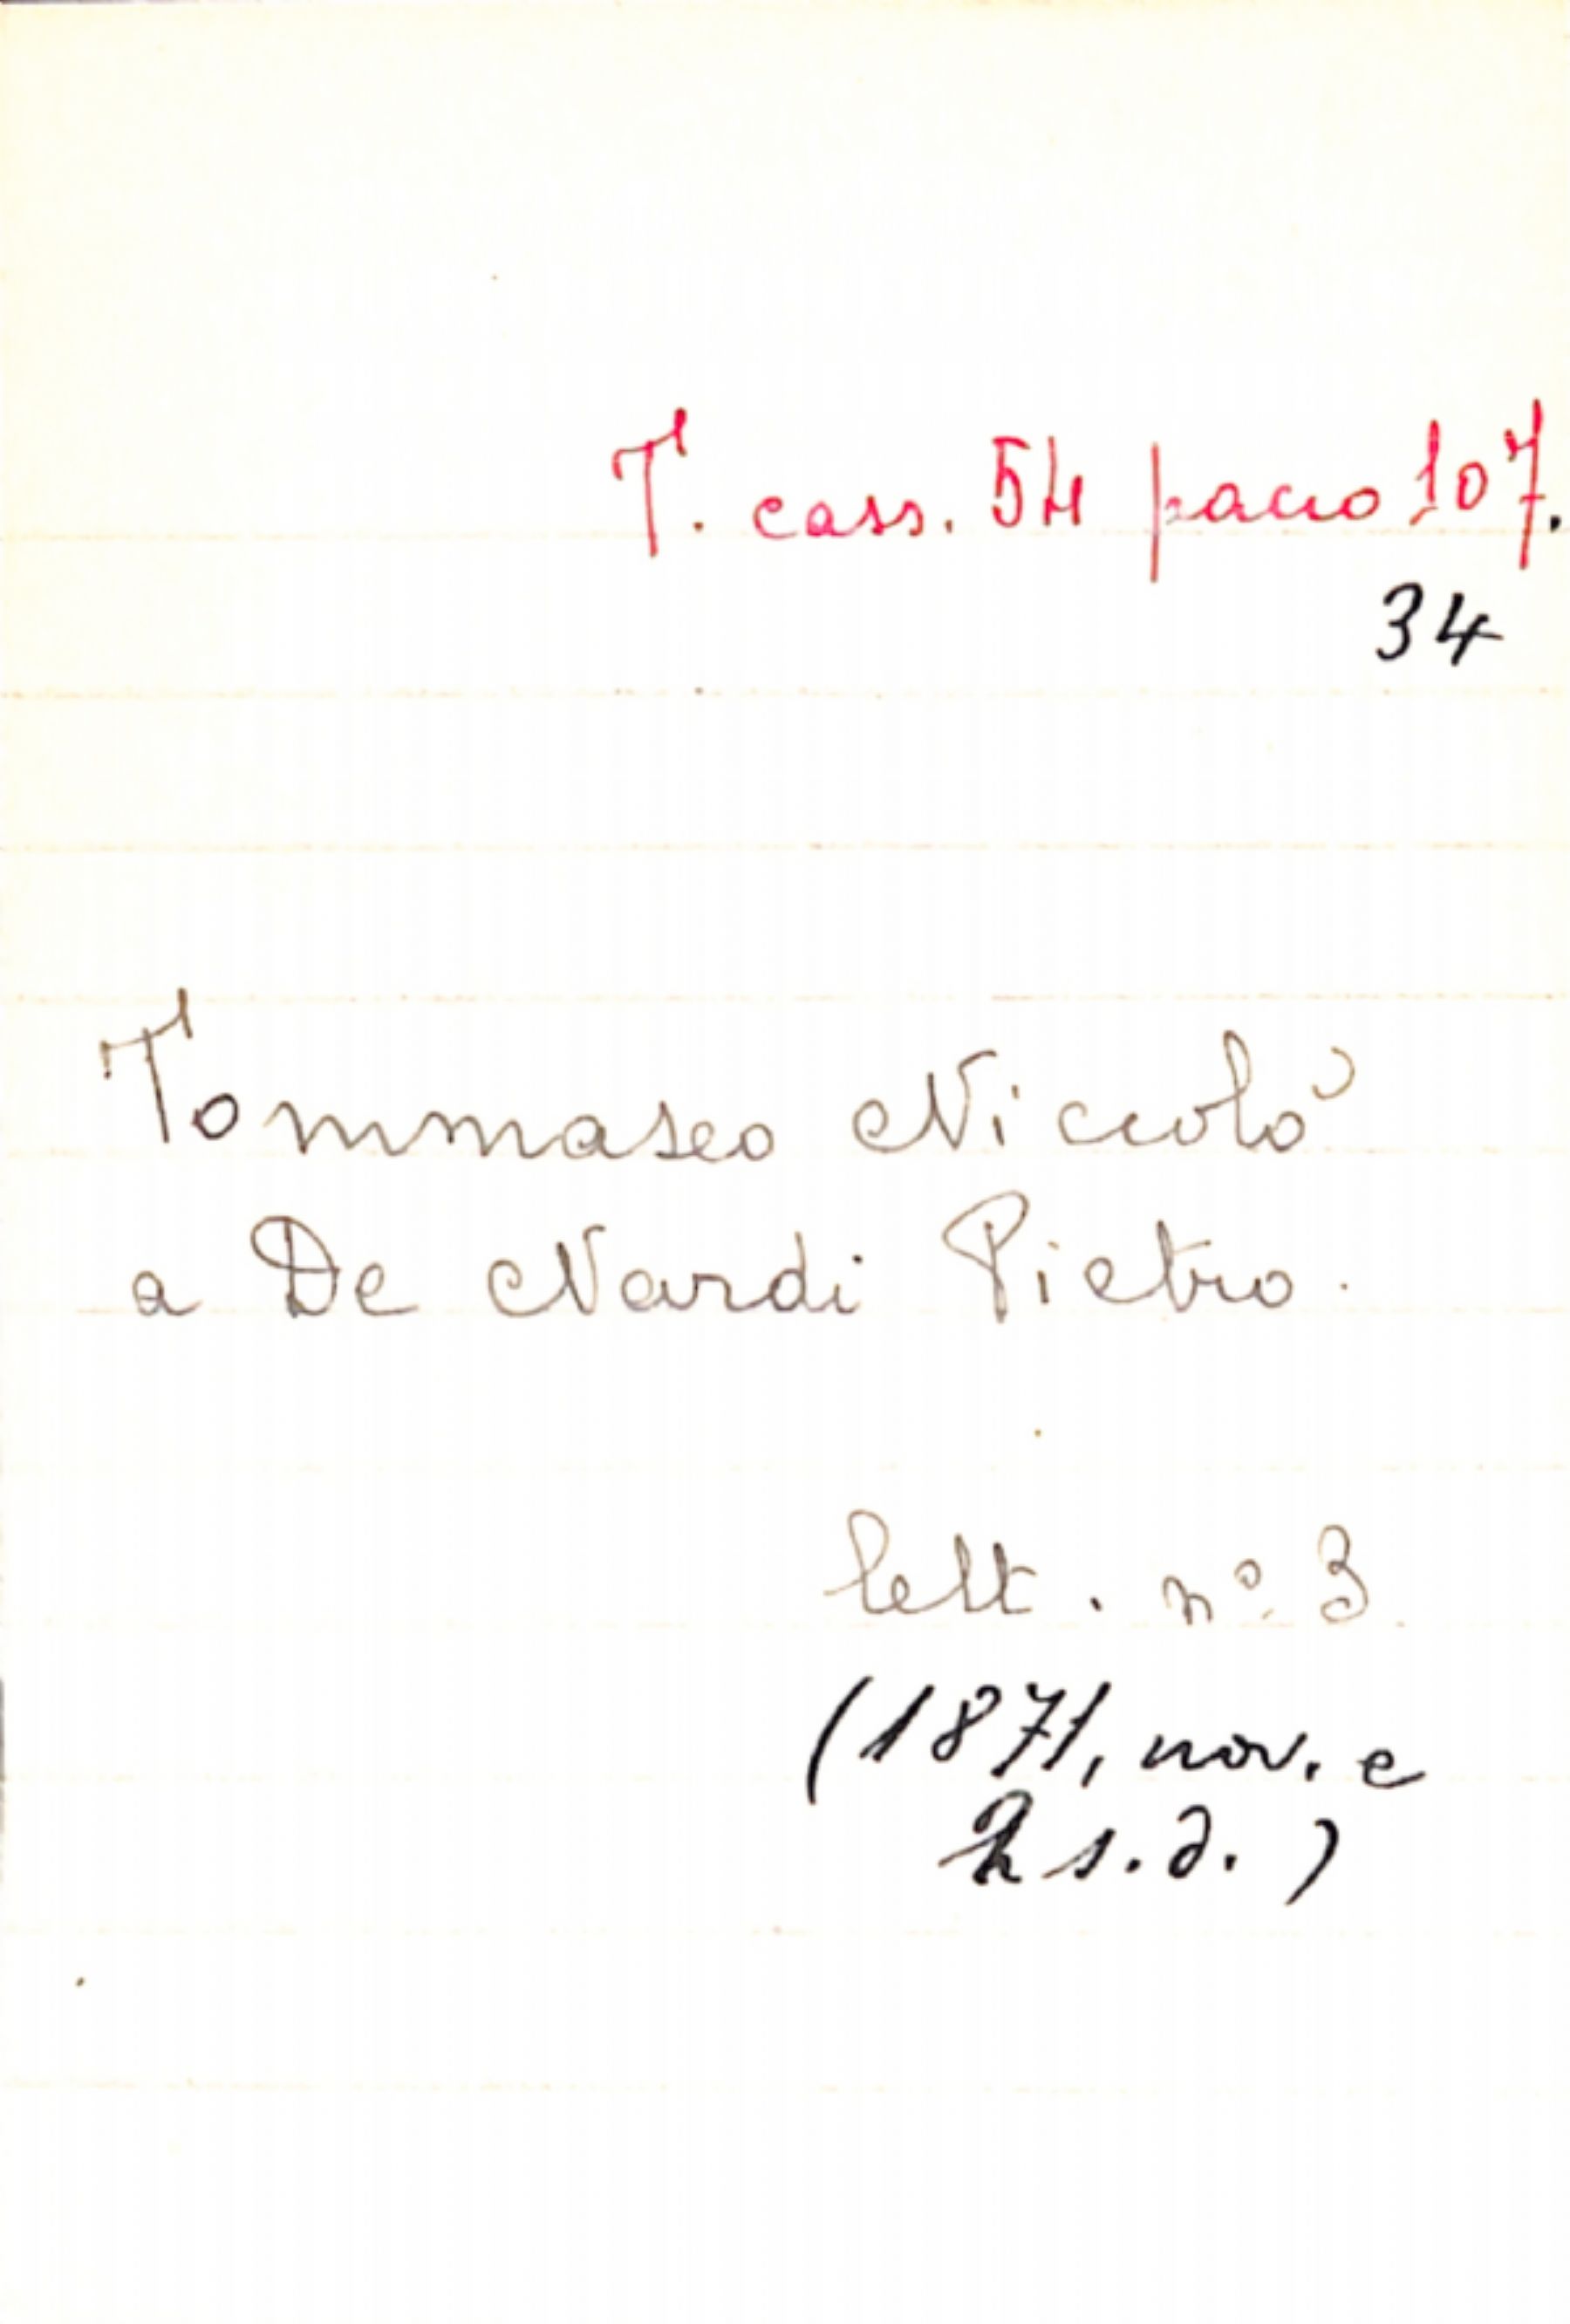 T. cass. 54 pacco 107.
34
Tommaseo Niccolò
a De Nardi Pietro.
lett. nº 3.
(1871, nov. e
2 s.d.)